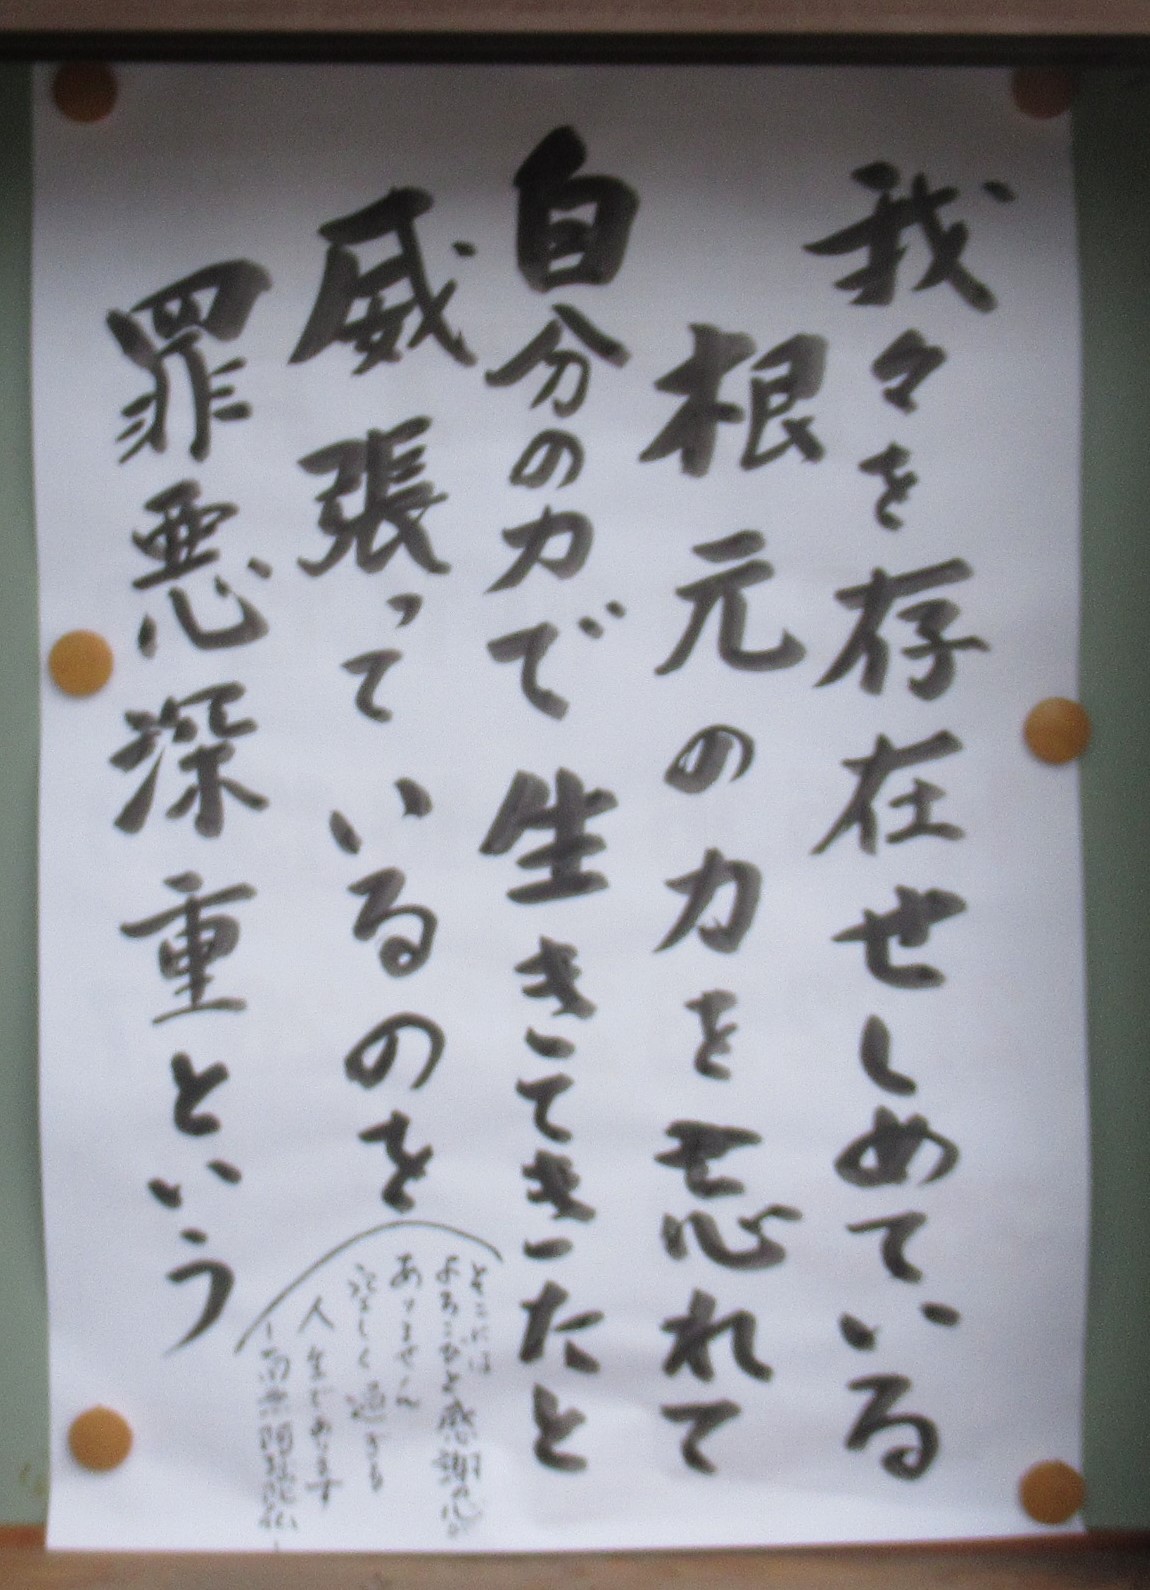 我々を存在せしめている
根元の力を忘れて
自分の力で生きてきたと
威張っているのを
罪悪深重という
そこには
よろこびと感謝の心が
ありません
空しく過ぎる
人生であります
―南無阿弥陀仏―